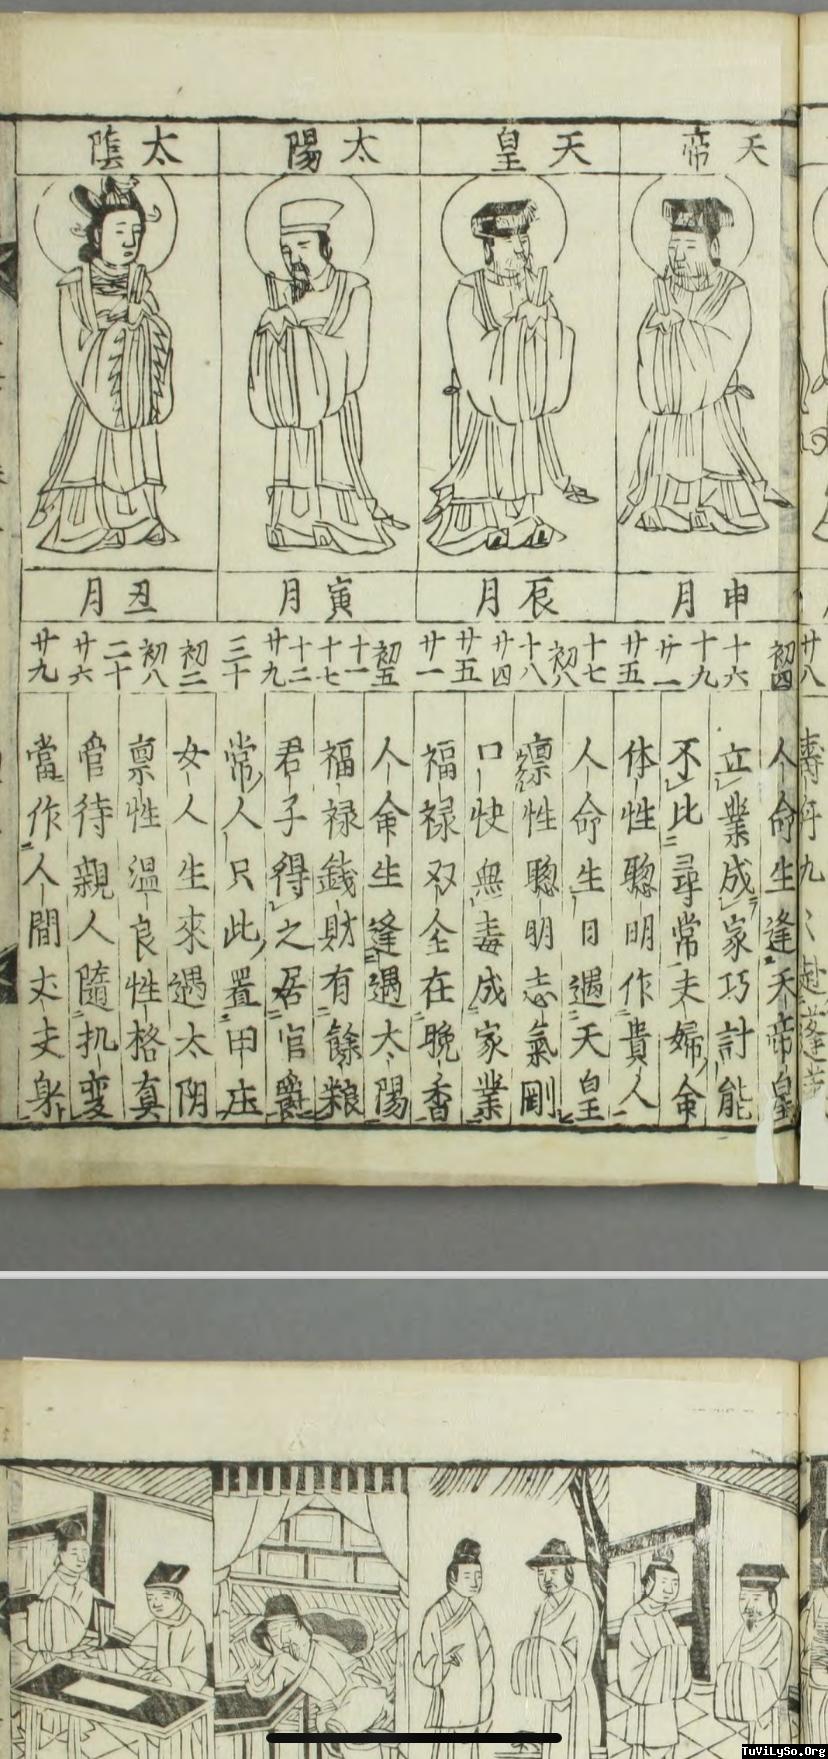 天帝
申月
初四
十六
十九
廿一
廿五
人命生逢天帝皇
立業成家巧計能
不比尋常夫婦命
体性聰明作貴人
天皇
辰月
十七
初八
十八
廿四
廿五
廿一
人命生日遇天皇
禀性聰明志氣剛
口快無毒成家業
福禄双全在晚香
太陽
寅月
初五
十一
十七
十二
廿九
三十
人命生逢遇太陽
福禄錢財有餘粮
君子得之居官爵
常人只此置田庄
太陰
丑月
初二
初八
二十
廿六
廿九
女人生來遇太阴
禀性溫良性格真
管待親人隨机変
當作人間丈夫身
TuViLySo.Org